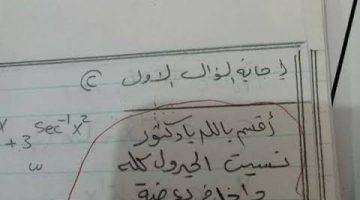 إجابة السؤال الاول (c
x + 3^{sec⁻¹ x²}
أقسم بالله يا دكتور
نسيت الجدول كله